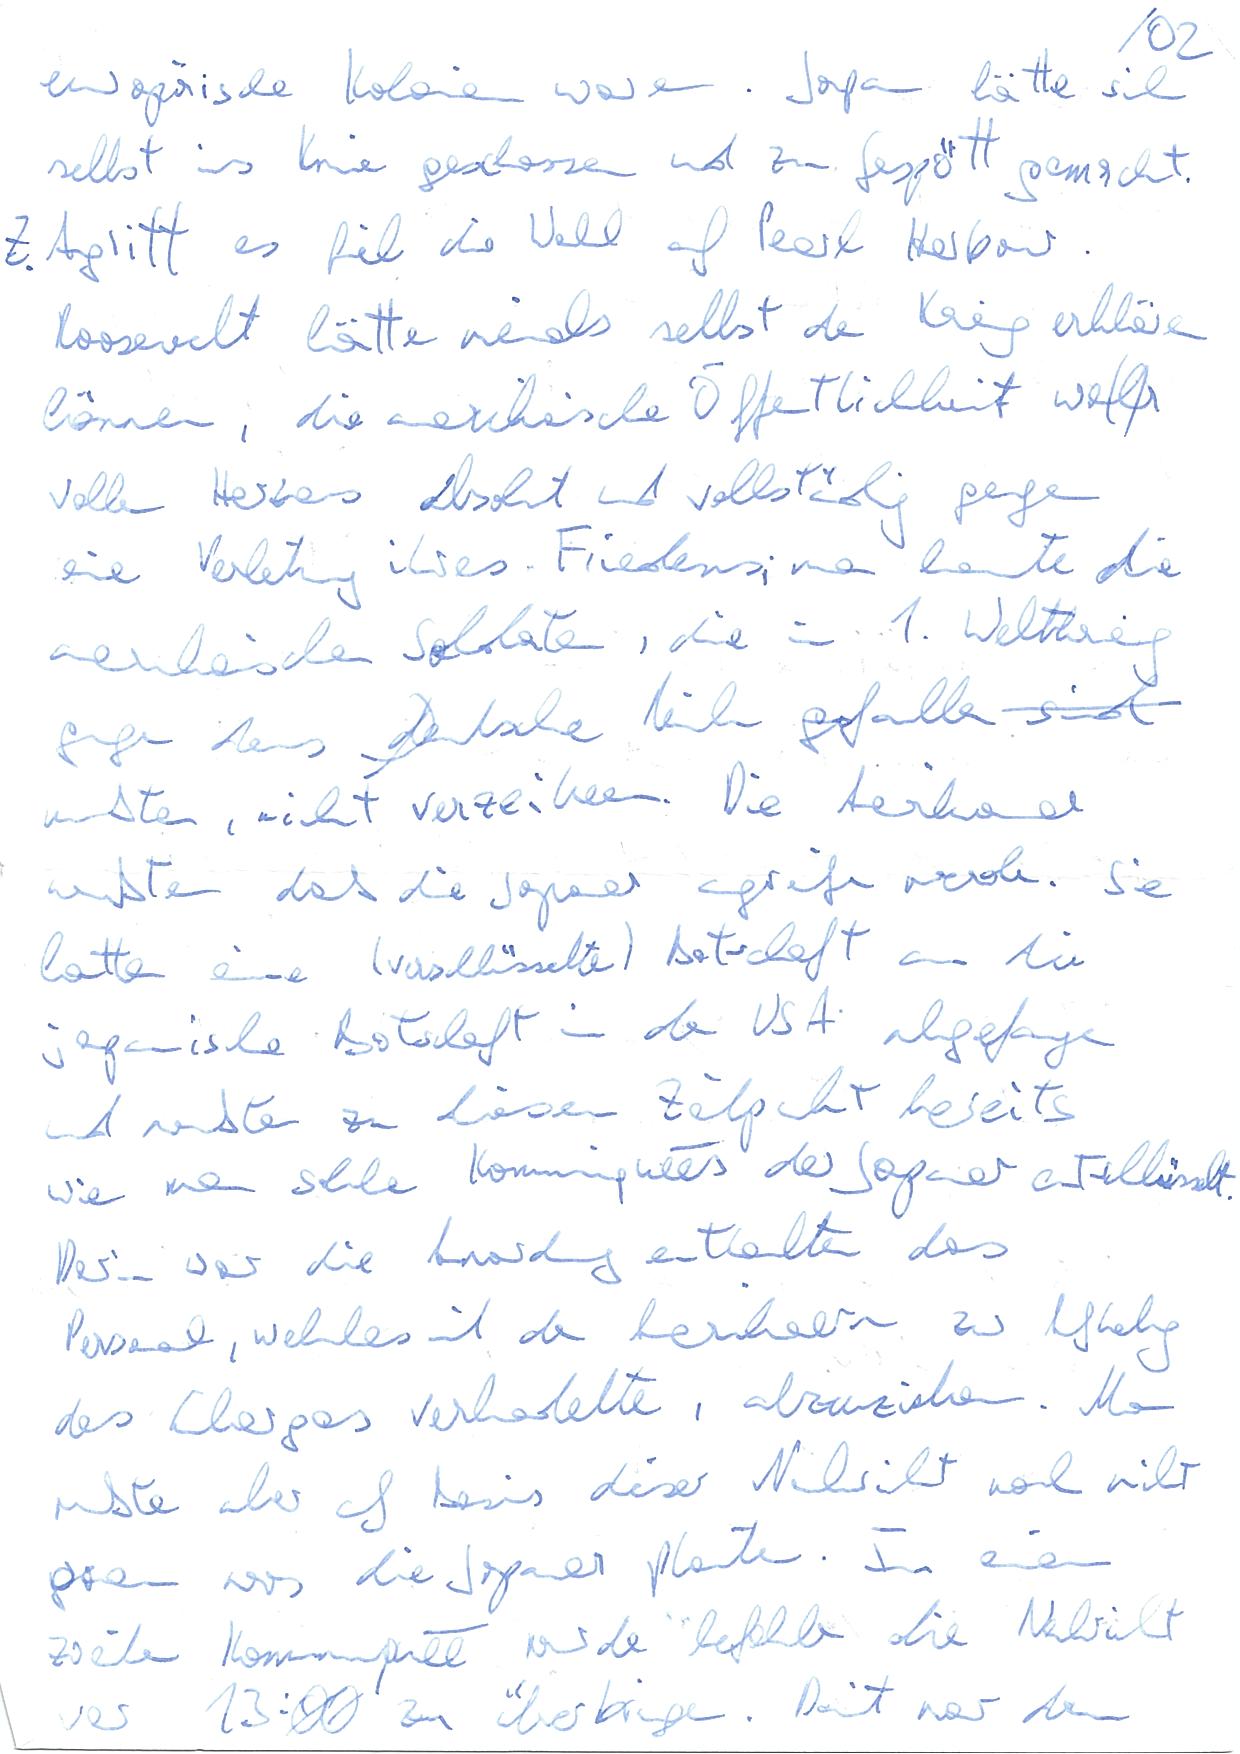 102
europäische Kolonien waren. Japan hätte sich
selbst ins Knie geschossen und zum Gespött gemacht.
Z. Angriff es fiel die Wahl auf Pearl Harbour.
Roosevelt hätte niemals selbst den Krieg erklären
können, die amerikanische Öffentlichkeit war
vollen Herzens absolut und vollständig gegen
eine Verletzung ihres Friedens; man konnte die
amerikanischen Soldaten, die im 1. Weltkrieg
gegen das Deutsche Reich gefallen sind
mußten, nicht verzeihen. Die Amerikaner
wußten daß die Japaner angreifen werden. Sie
hatten eine (verschlüsselte) Botschaft an die
japanische Botschaft in den USA abgefangen
und wußten zu diesem Zeitpunkt bereits
wie man solche Kommuniqueés der Japaner entschlüsselt.
Darin war die Anordnung enthalten das
Personal, welches mit den Amerikanern zur Aufhebung
des Embargos verhandelte, abzuziehen. Man
wußte aber auf Basis dieser Nachricht noch nicht
genau was die Japaner planten. In einem
zweiten Kommuniqueé wurde befohlen die Nachricht
vor 13:00 zu überbringen. Damit war den